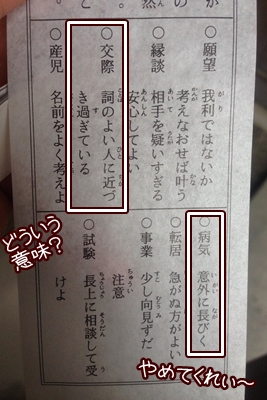 ○願望 我利ではないか
考えなおせば叶う
○縁談 相手を疑いすぎる
安心してよい
○交際 詞のよい人に近づ
き過ぎている
○産児 名前をよく考えよ
○病気 意外に長びく
○転居 急がぬ方がよい
○事業 少し向見ずだ
注意
○試験 長上に相談して受
けよ
どういう
意味?
やめてくれぃ〜